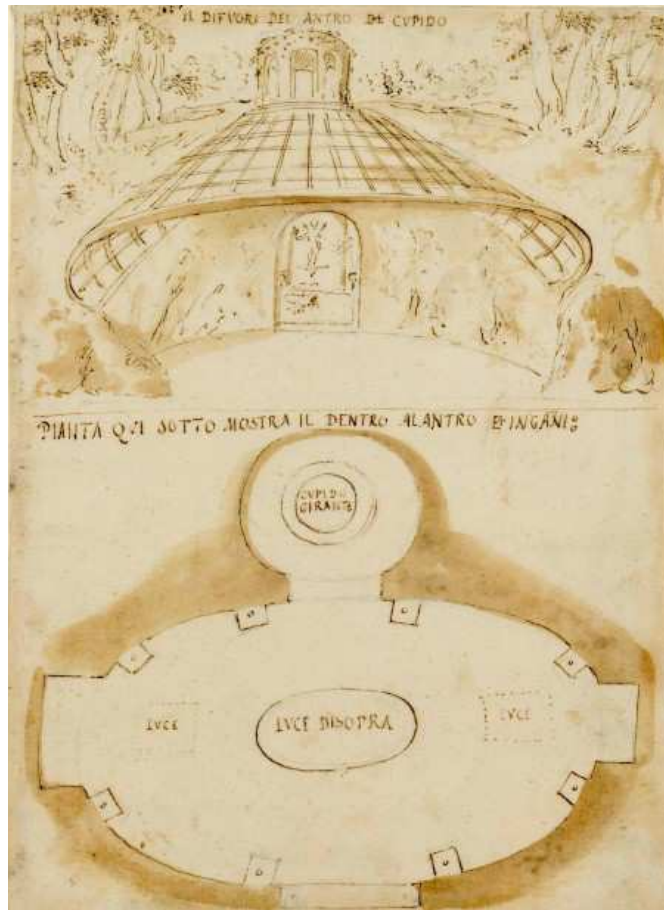 IL DIFVORI DEL ANTRO DE CVPIDO
PIANTA QVI SOTTO MOSTRA IL DENTRO ALANTRO ET INGANI
CVPIDO
GIRANTE
LVCE
LVCE DISOPRA
LVCE